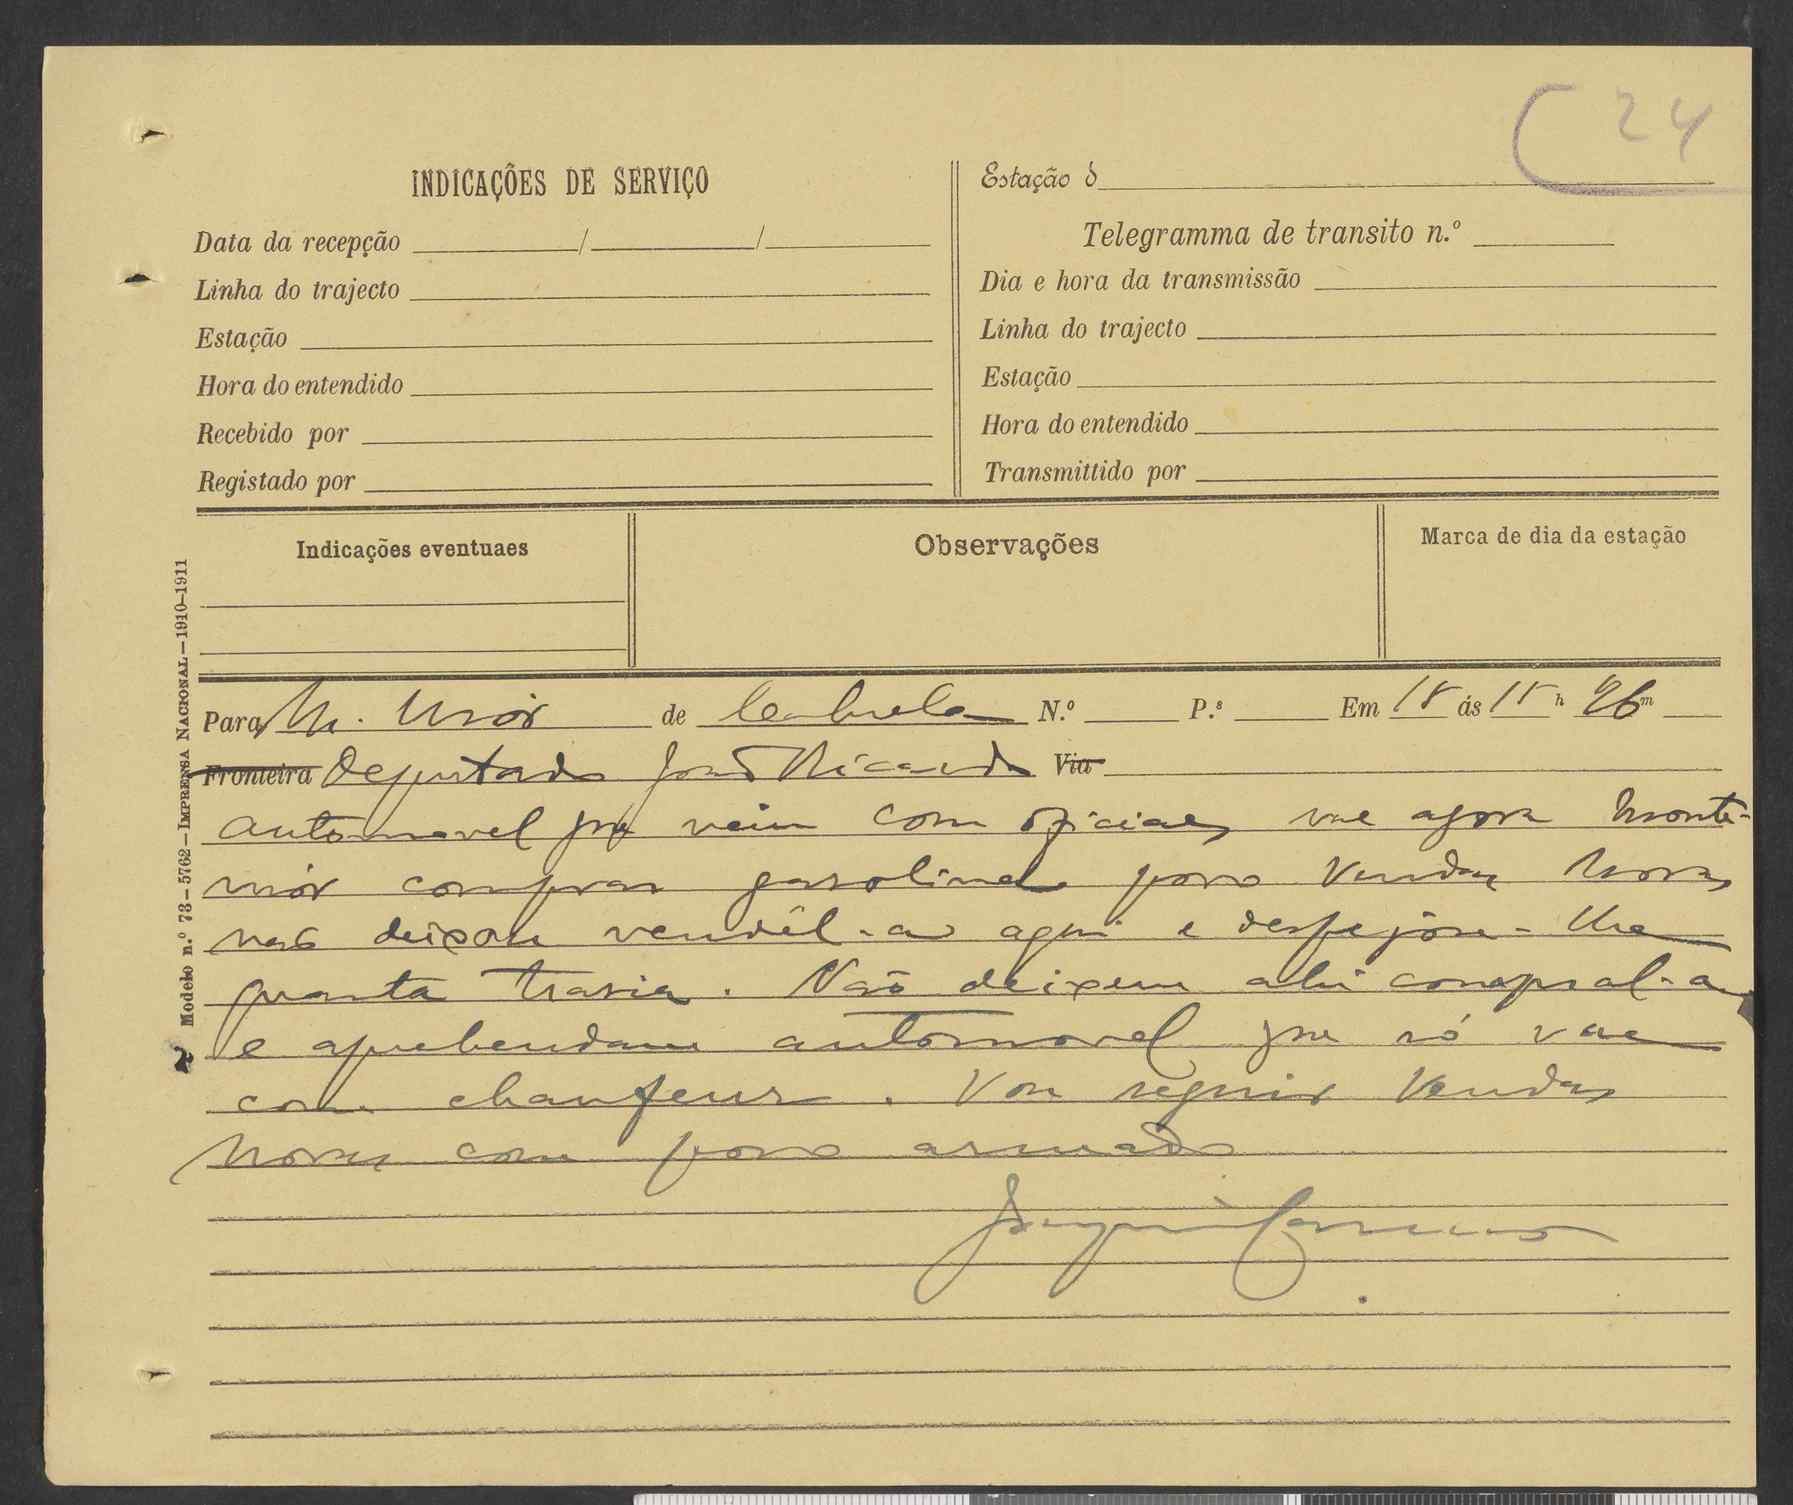 24
INDICAÇÕES DE SERVIÇO
Data da recepção / /
Linha do trajecto
Estação
Hora do entendido
Recebido por
Registado por
Estação d
Telegramma de transito n.º
Dia e hora da transmissão
Linha do trajecto
Estação
Hora do entendido
Transmittido por
Indicações eventuaes
Observações
Marca de dia da estação
Modelo n.º 73—5762—IMPRENSA NACIONAL—1910-1911
Para M. Mór de N.º P.s Em 15 ás 15 h 26 m
Fronteira Deputado João Ricardo Via
automovel que veiu com oficiaes vae agora Monte-
mór comprar gasolina povo Vendas Novas
não deixou vendêl-a aqui e despejou-lhe
quanta trazia. Não deixem ahi compral-a
e aprehendam automovel que só vae
com chaufeur. Vou seguir Vendas
Novas com povo armado